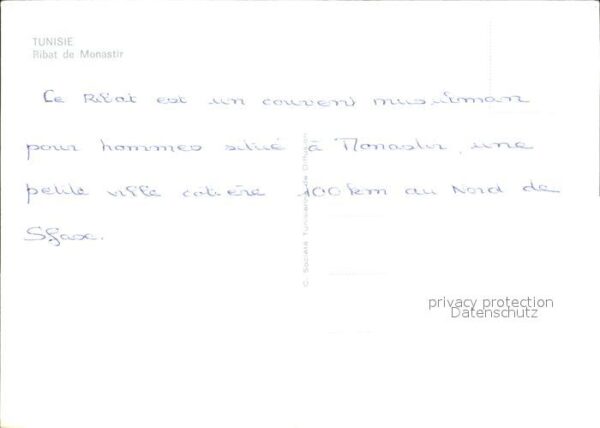 TUNISIE
Ribat de Monastir
Le Ribat est un couvent musulman
pour hommes situé à Monastir, une
petite ville cotière 100 km au Nord de
Sfax.
C. Société Tunisienne de Diffusion
privacy protection
Datenschutz